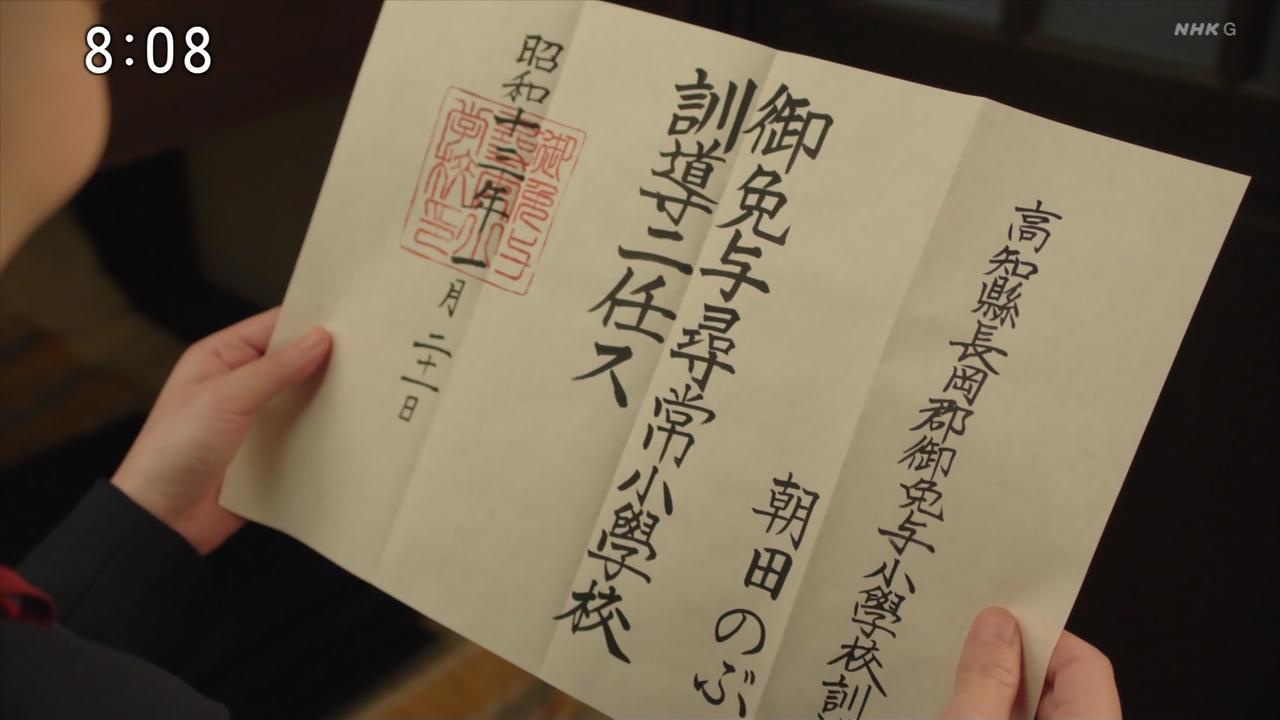 8:08
NHK G
高知縣長岡郡御免与小學校訓
朝田のぶ
御免与尋常小學校
訓導ニ任ス
昭和十三年一月二十一日